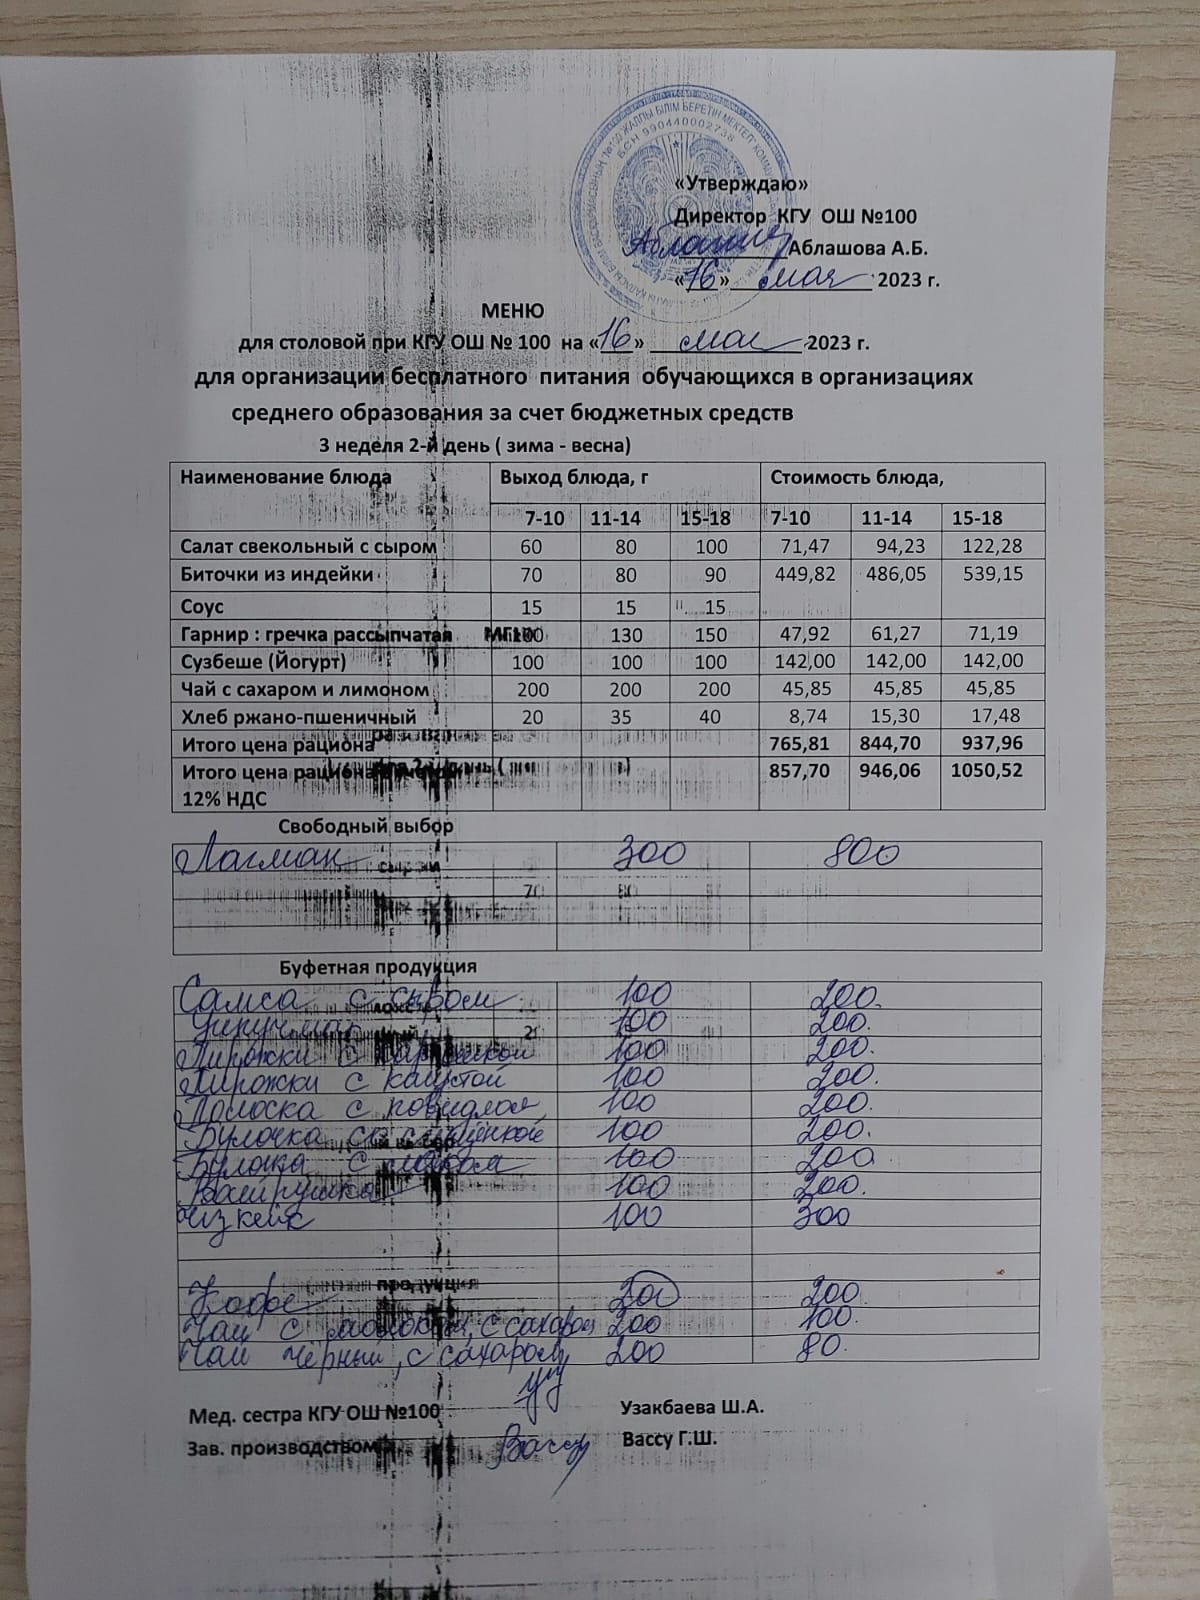 №100 ЖАЛПЫ БІЛІМ БЕРЕТІН МЕКТЕП
БСН 990440002736
«Утверждаю»
Директор КГУ ОШ №100
Аблашова А.Б.
«16» мая 2023 г.
МЕНЮ
для столовой при КГУ ОШ № 100 на «16» мая 2023 г.
для организации бесплатного питания обучающихся в организациях
среднего образования за счет бюджетных средств
3 неделя 2-й день ( зима - весна)
Наименование блюда Выход блюда, г Стоимость блюда,
7-10 11-14 15-18 7-10 11-14 15-18
Салат свекольный с сыром 60 80 100 71,47 94,23 122,28
Биточки из индейки 70 80 90 449,82 486,05 539,15
Соус 15 15 15
Гарнир : гречка рассыпчатая 130 150 47,92 61,27 71,19
Сузбеше (Йогурт) 100 100 100 142,00 142,00 142,00
Чай с сахаром и лимоном 200 200 200 45,85 45,85 45,85
Хлеб ржано-пшеничный 20 35 40 8,74 15,30 17,48
Итого цена рациона 765,81 844,70 937,96
Итого цена рациона 857,70 946,06 1050,52
12% НДС
Свободный выбор
Лагман 300 800
Буфетная продукция
Самса с сыром 100 200
100 200.
Пирожки с картошкой 100 200.
Пирожки с капустой 100 200.
Полоска с повидлом 100 200.
Булочка со сгущенкой 100 200.
Булочка с маком 100 200
Ватрушка 100 200.
Чизкейк 100 300
Кофе 200 200.
Чай с молоком, с сахаром 200 100.
Чай чёрный, с сахаром 200 80.
Мед. сестра КГУ ОШ №100 Узакбаева Ш.А.
Зав. производством Вассу Вассу Г.Ш.